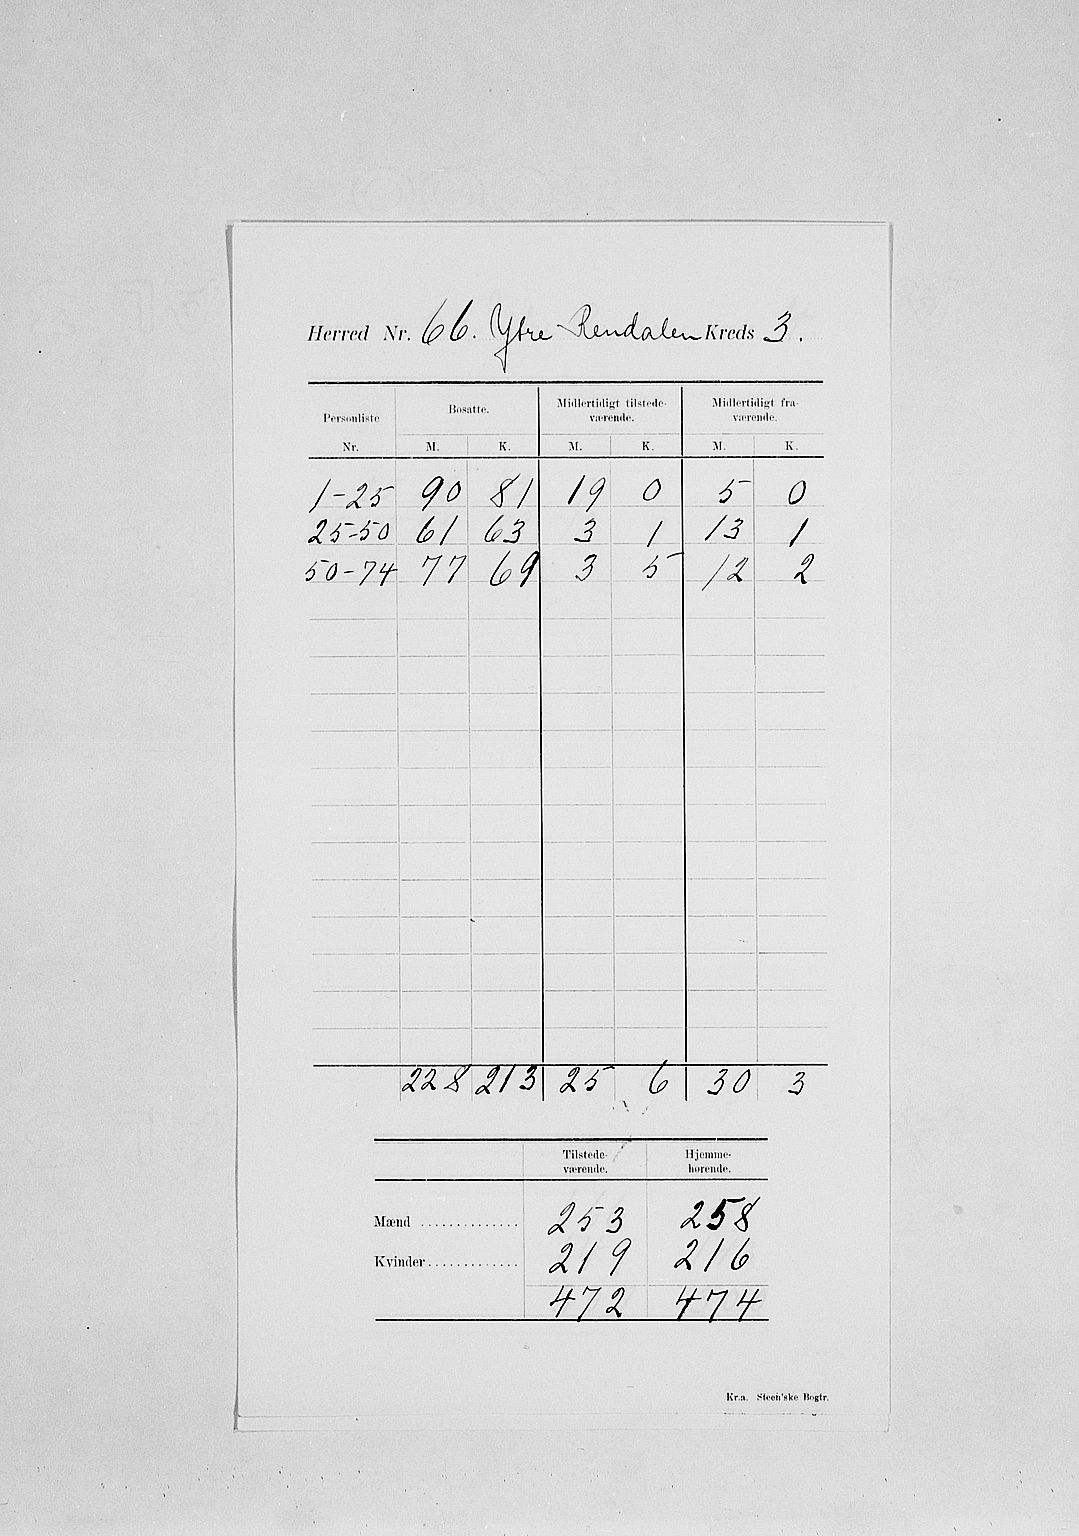 Herred Nr. 66. Ytre Rendalen Kreds 3.
Personliste Nr. Bosatte. Midlertidigt tilstede-værende. Midlertidigt fra-værende.
M. K. M. K. M. K.
1-25 90 81 19 0 5 0
25-50 61 63 3 1 13 1
50-74 77 69 3 5 12 2
228 213 25 6 30 3
Tilstede-værende. Hjemme-hørende.
Mænd .............. 253 258
Kvinder ............. 219 216
472 474
Kr.a. Steen'ske Bogtr.